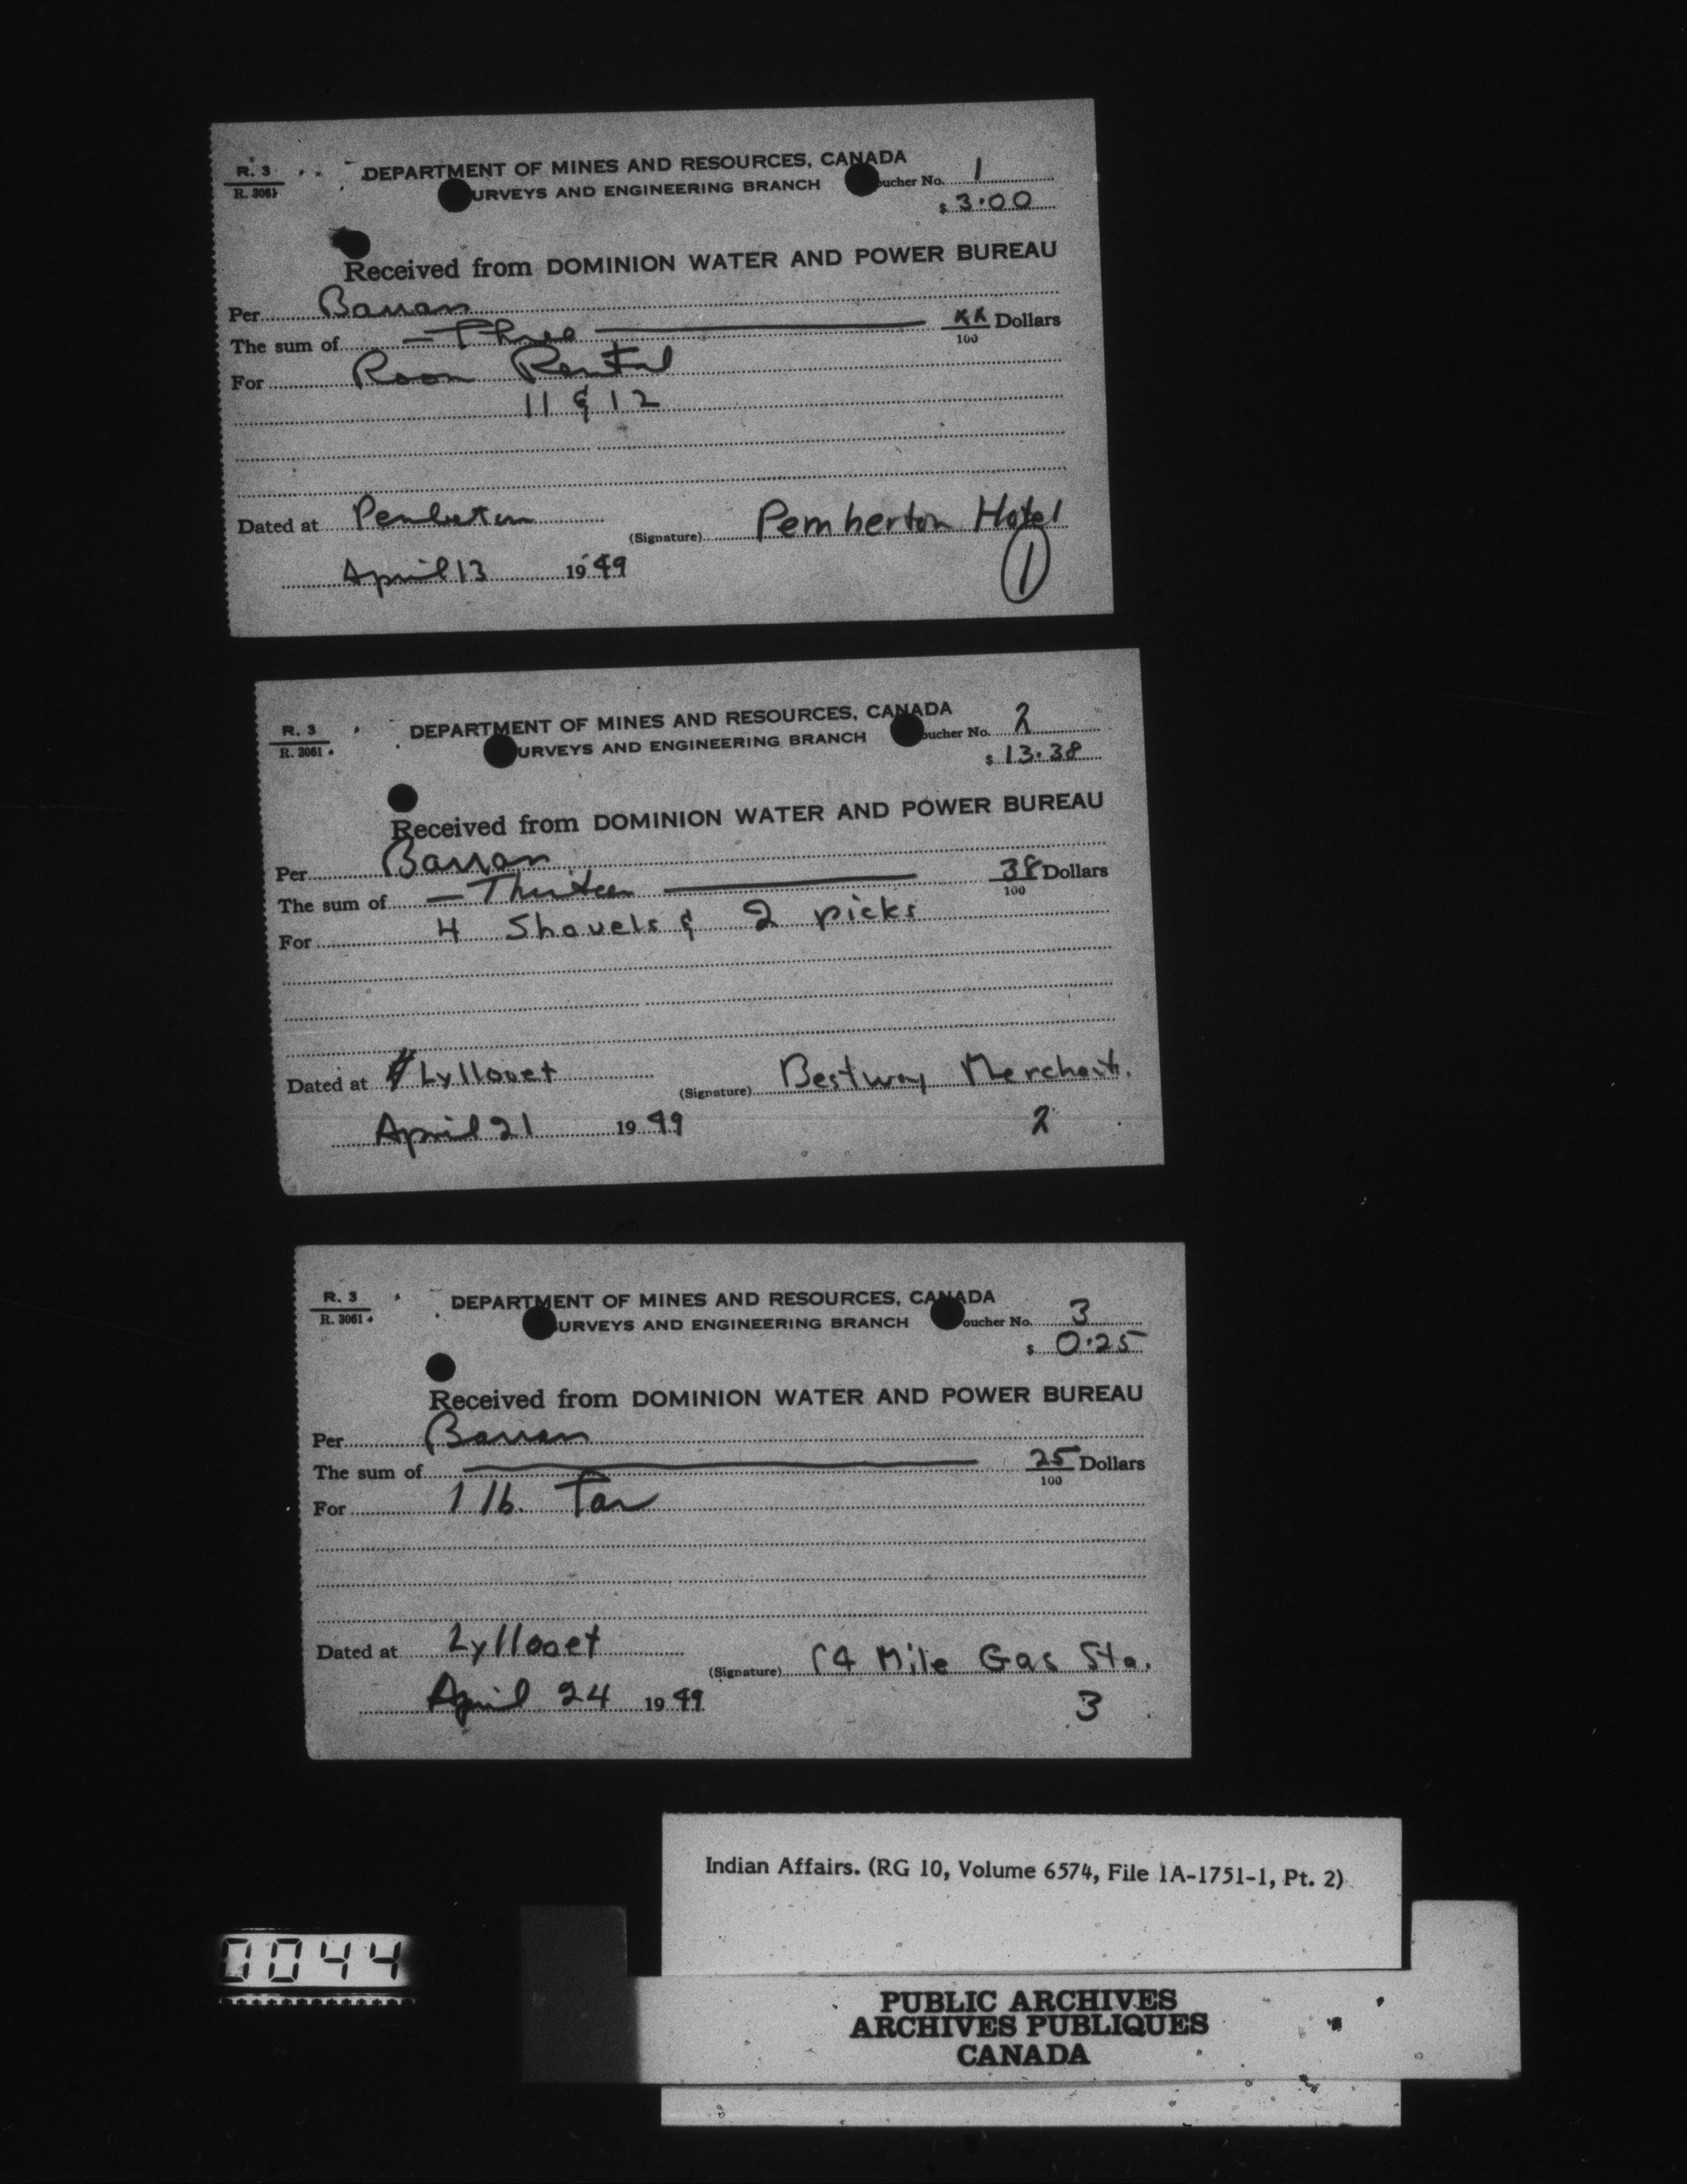 R. 3
R. 3061
DEPARTMENT OF MINES AND RESOURCES, CANADA
URVEYS AND ENGINEERING BRANCH
oucher No. 1
$ 3.00
Received from DOMINION WATER AND POWER BUREAU
Per Barran
The sum of — Three — xx/100 Dollars
For Room Rental
11 & 12
Dated at Pemberton
(Signature) Pemberton Hotel
April 13 1949
1
R. 3
R. 3061
DEPARTMENT OF MINES AND RESOURCES, CANADA
URVEYS AND ENGINEERING BRANCH
oucher No. 2
$ 13.38
Received from DOMINION WATER AND POWER BUREAU
Per Barran
The sum of — Thirteen — 38/100 Dollars
For 4 Shovels & 2 picks
Dated at Lyllooet
(Signature) Bestway Merchants.
April 21 1949
2
R. 3
R. 3061
DEPARTMENT OF MINES AND RESOURCES, CANADA
URVEYS AND ENGINEERING BRANCH
oucher No. 3
$ 0.25
Received from DOMINION WATER AND POWER BUREAU
Per Barran
The sum of — 25/100 Dollars
For 1 lb. Tar
Dated at Lyllooet
(Signature) 14 Mile Gas Sta.
April 24 1949
3
Indian Affairs. (RG 10, Volume 6574, File 1A-1751-1, Pt. 2)
0044
PUBLIC ARCHIVES
ARCHIVES PUBLIQUES
CANADA